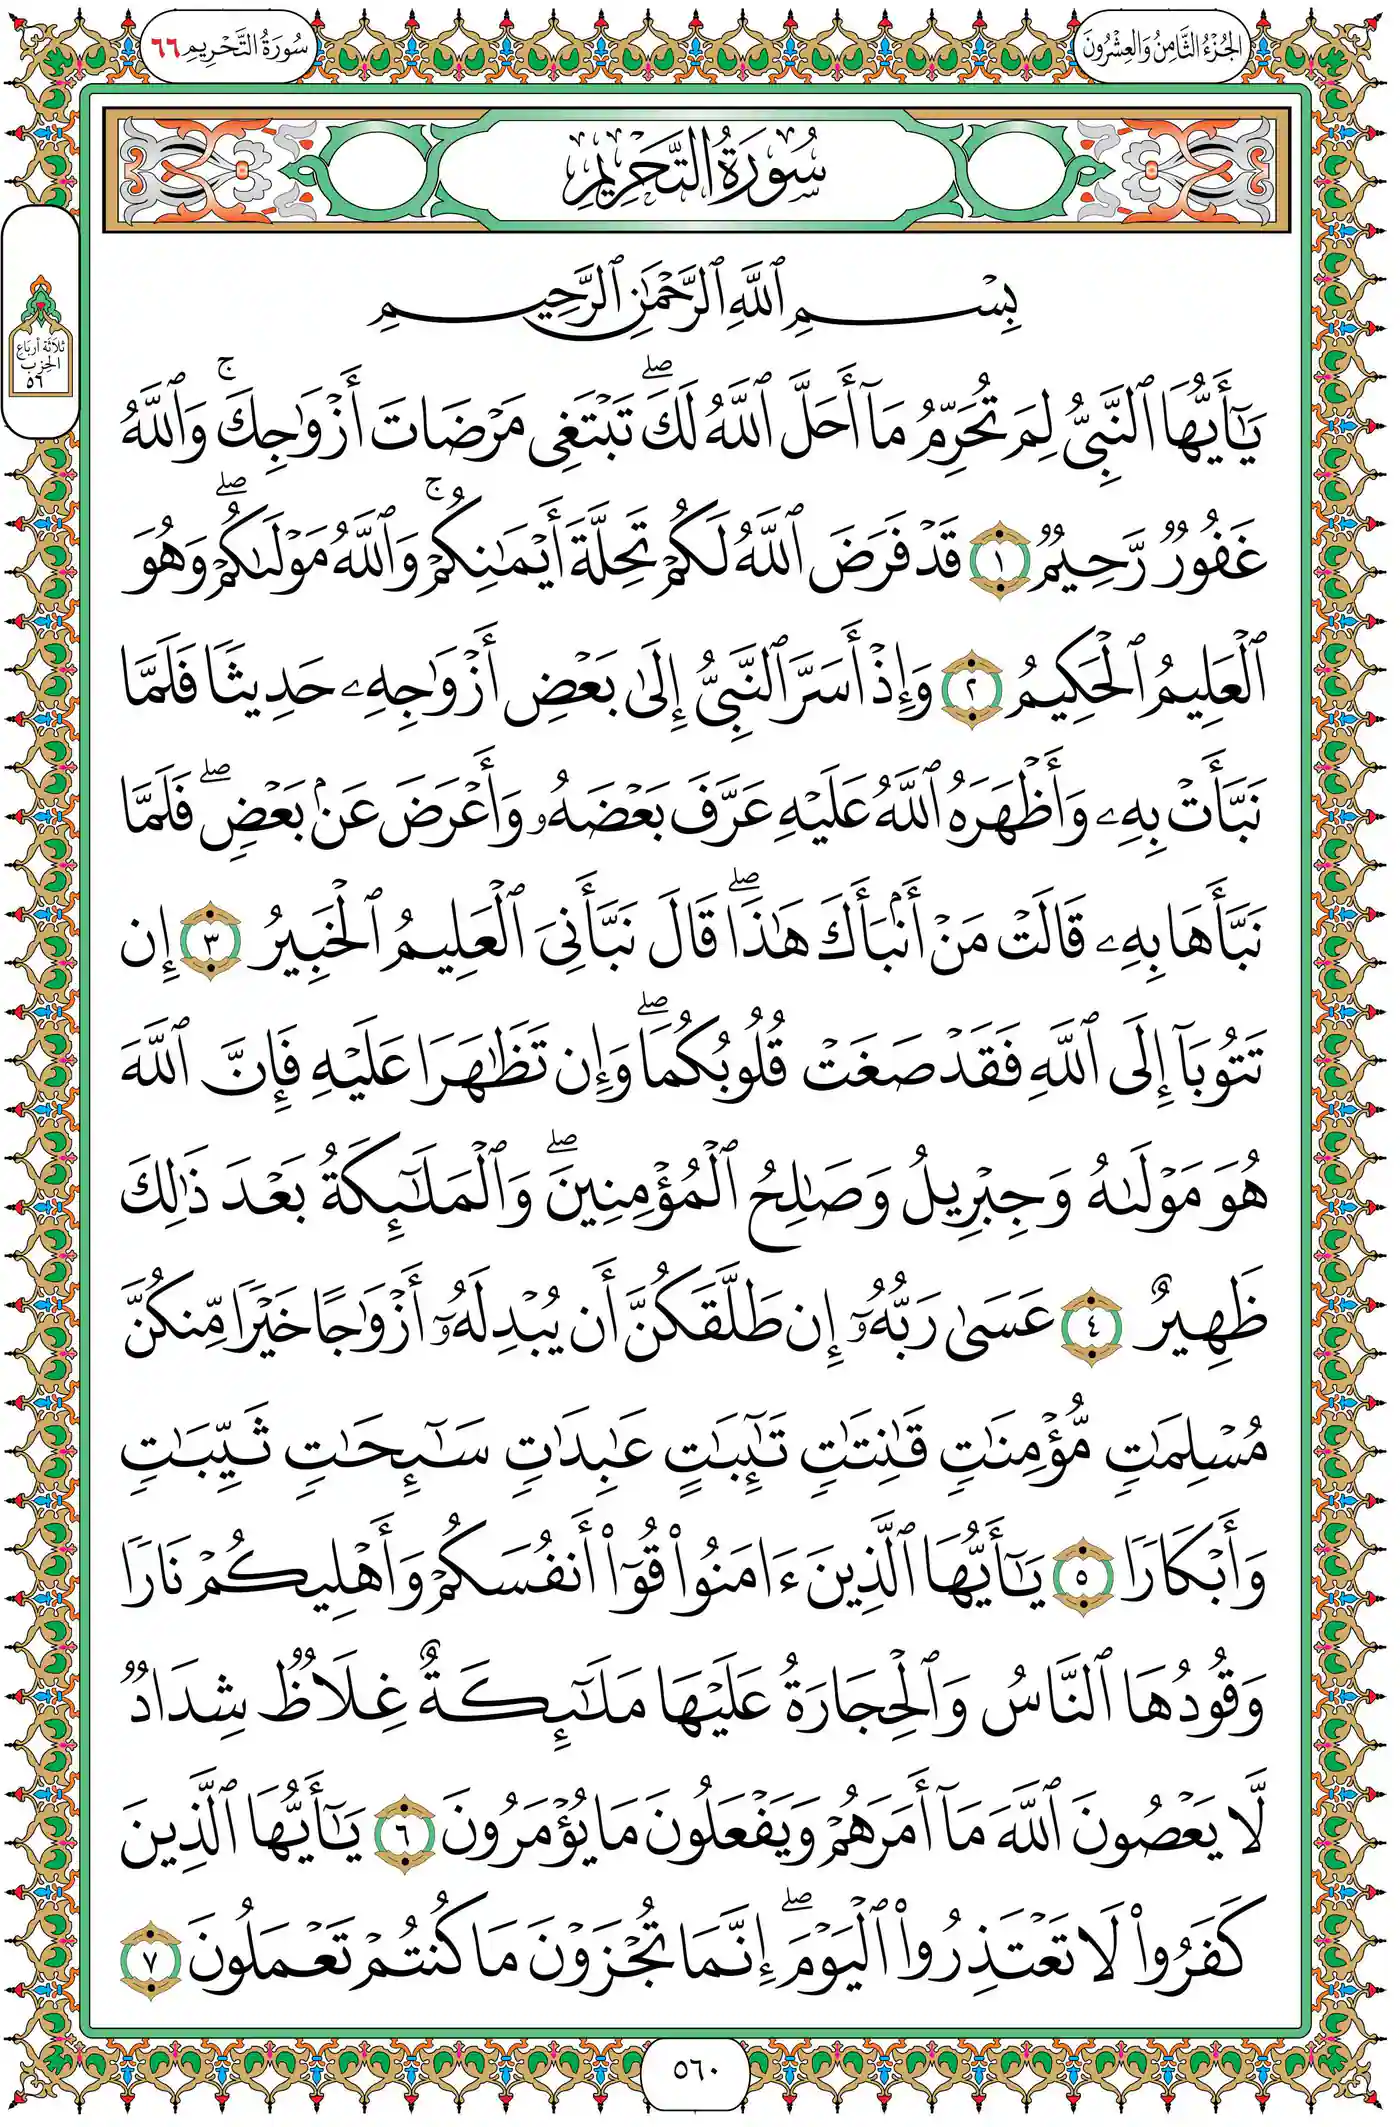 الجُزْءُ الثَّامِنُ وَالعِشْرُونَ
سُورَةُ التَّحْرِيمِ ٦٦
سُورَةُ التَّحْرِيمِ
ثلاثة أرباع
الحزب
٥٦
بِسْمِ ٱللَّهِ ٱلرَّحْمَٰنِ ٱلرَّحِيمِ
يَٰٓأَيُّهَا ٱلنَّبِىُّ لِمَ تُحَرِّمُ مَآ أَحَلَّ ٱللَّهُ لَكَۖ تَبْتَغِى مَرْضَاتَ أَزْوَٰجِكَۚ وَٱللَّهُ
غَفُورٌ رَّحِيمٌ ١ قَدْ فَرَضَ ٱللَّهُ لَكُمْ تَحِلَّةَ أَيْمَٰنِكُمْۚ وَٱللَّهُ مَوْلَىٰكُمْۖ وَهُوَ
ٱلْعَلِيمُ ٱلْحَكِيمُ ٢ وَإِذْ أَسَرَّ ٱلنَّبِىُّ إِلَىٰ بَعْضِ أَزْوَٰجِهِۦ حَدِيثًا فَلَمَّا
نَبَّأَتْ بِهِۦ وَأَظْهَرَهُ ٱللَّهُ عَلَيْهِ عَرَّفَ بَعْضَهُۥ وَأَعْرَضَ عَنۢ بَعْضٍۖ فَلَمَّا
نَبَّأَهَا بِهِۦ قَالَتْ مَنْ أَنۢبَأَكَ هَٰذَاۖ قَالَ نَبَّأَنِىَ ٱلْعَلِيمُ ٱلْخَبِيرُ ٣ إِن
تَتُوبَآ إِلَى ٱللَّهِ فَقَدْ صَغَتْ قُلُوبُكُمَاۖ وَإِن تَظَٰهَرَا عَلَيْهِ فَإِنَّ ٱللَّهَ
هُوَ مَوْلَىٰهُ وَجِبْرِيلُ وَصَٰلِحُ ٱلْمُؤْمِنِينَۖ وَٱلْمَلَٰٓئِكَةُ بَعْدَ ذَٰلِكَ
ظَهِيرٌ ٤ عَسَىٰ رَبُّهُۥٓ إِن طَلَّقَكُنَّ أَن يُبْدِلَهُۥٓ أَزْوَٰجًا خَيْرًا مِّنكُنَّ
مُسْلِمَٰتٍ مُّؤْمِنَٰتٍ قَٰنِتَٰتٍ تَٰٓئِبَٰتٍ عَٰبِدَٰتٍ سَٰٓئِحَٰتٍ ثَيِّبَٰتٍ
وَأَبْكَارًا ٥ يَٰٓأَيُّهَا ٱلَّذِينَ ءَامَنُوا۟ قُوٓا۟ أَنفُسَكُمْ وَأَهْلِيكُمْ نَارًا
وَقُودُهَا ٱلنَّاسُ وَٱلْحِجَارَةُ عَلَيْهَا مَلَٰٓئِكَةٌ غِلَاظٌ شِدَادٌ
لَّا يَعْصُونَ ٱللَّهَ مَآ أَمَرَهُمْ وَيَفْعَلُونَ مَا يُؤْمَرُونَ ٦ يَٰٓأَيُّهَا ٱلَّذِينَ
كَفَرُوا۟ لَا تَعْتَذِرُوا۟ ٱلْيَوْمَۖ إِنَّمَا تُجْزَوْنَ مَا كُنتُمْ تَعْمَلُونَ ٧
٥٦٠